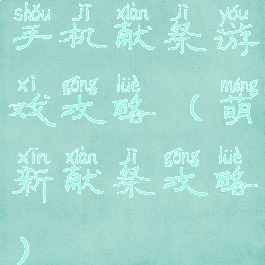 shǒu jī xiàn jì yóu
手机献祭游
xì gōng lüè méng
戏攻略(萌
xīn xiàn jì gōng lüè
新献祭攻略
)